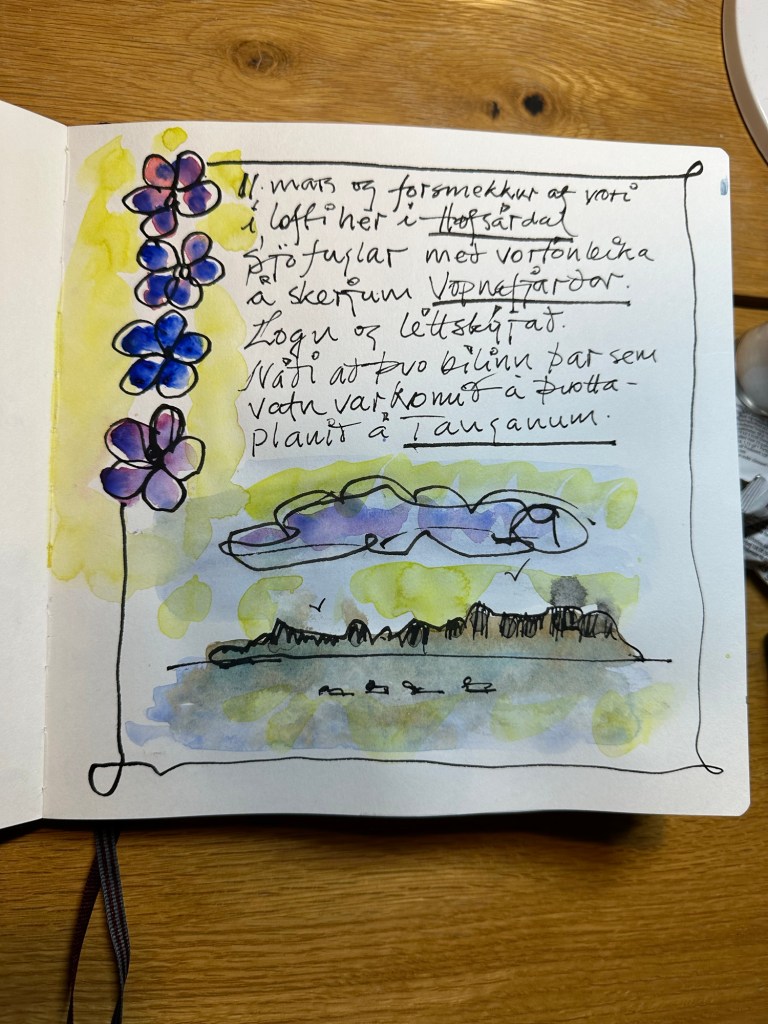 11. mars og forsmekkur af vori
í lofti hér í Hofsárdal
Sjófuglar með vortónleika
á skerjum Vopnafjarðar.
Logn og léttskýjað.
Náði að þvo bílinn þar sem
vatn var komið á þvotta-
planið á Tanganum.